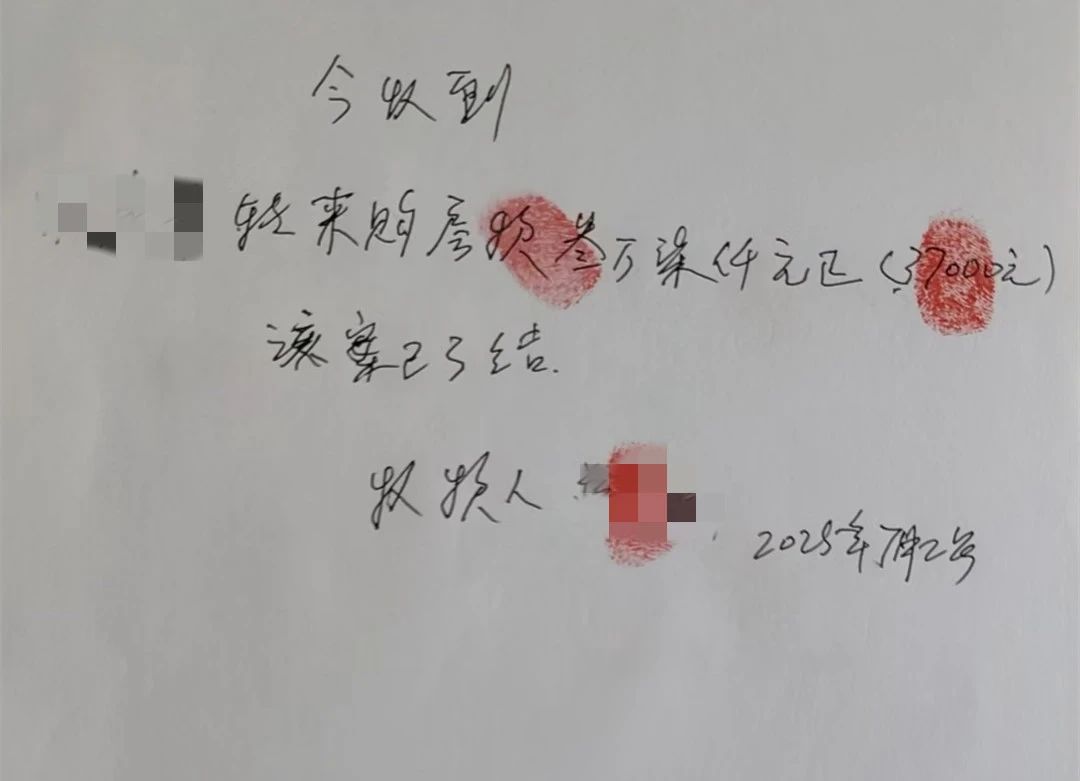 今收到
转来购房款叁万柒仟元正（37000元）
该案已了结.
收款人
2025年7月22号